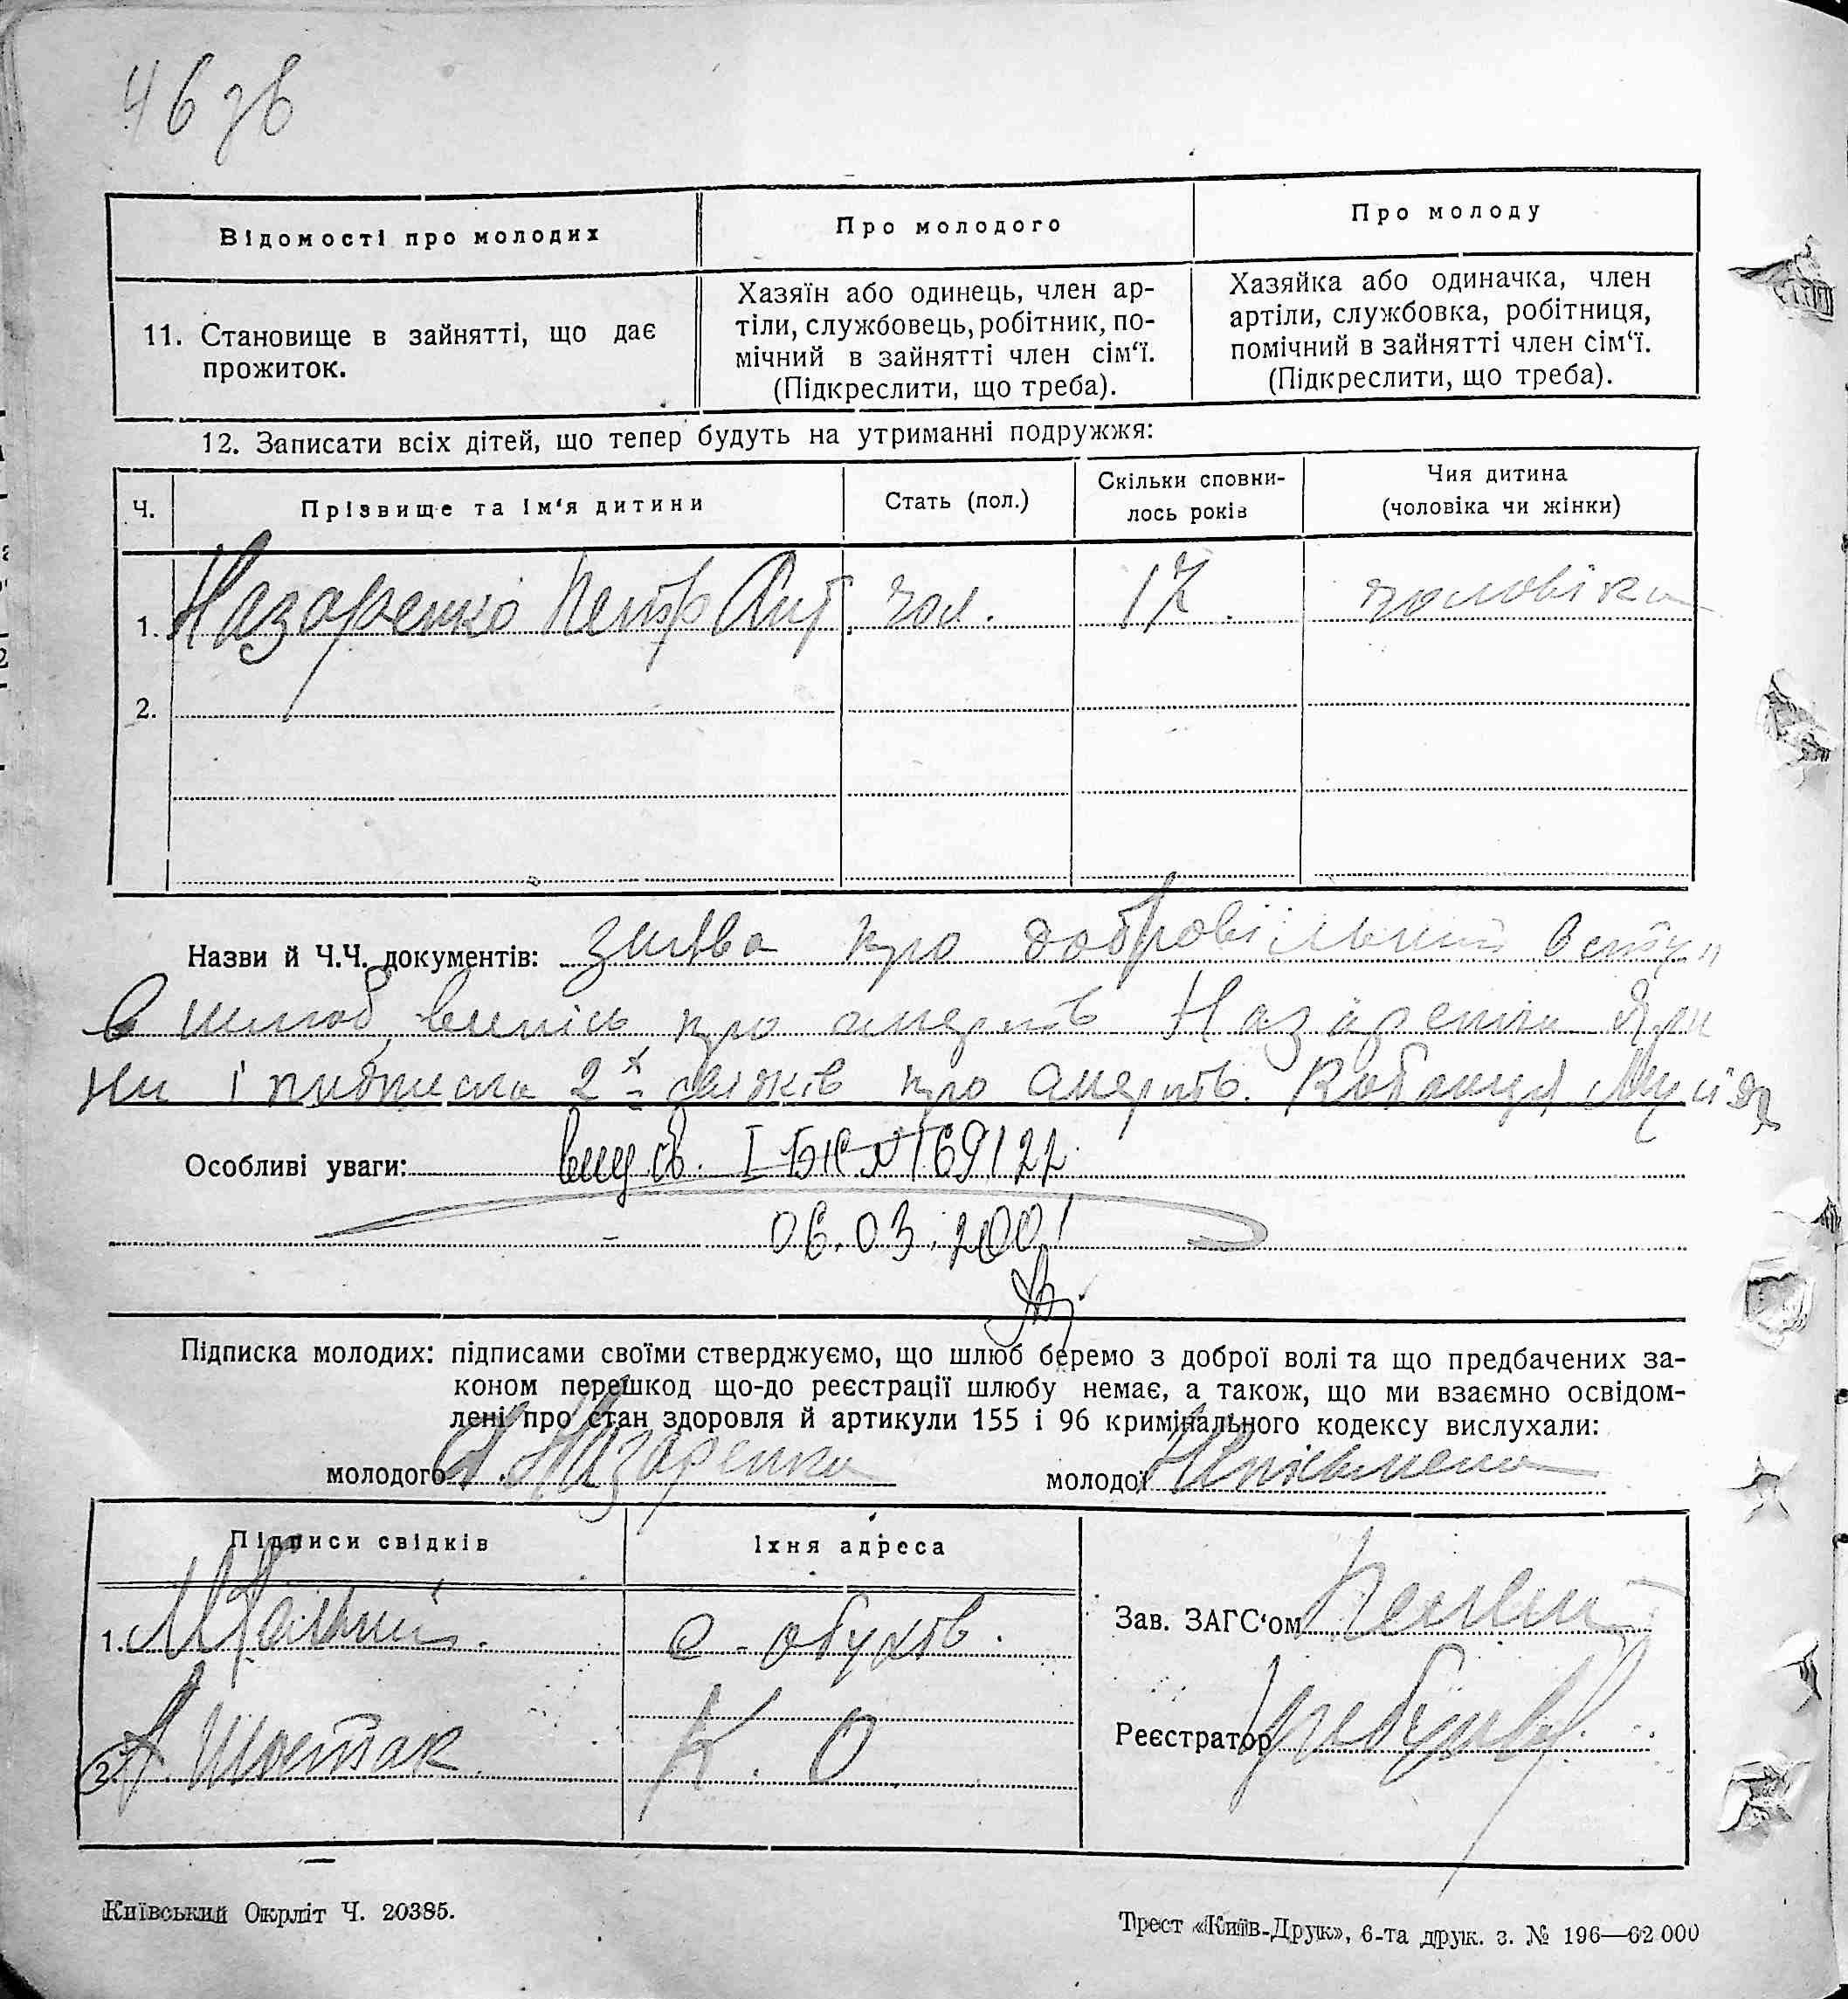 46 зв
Відомості про молодих
Про молодого
Про молоду
11. Становище в зайнятті, що дає
прожиток.
Хазяїн або одинець, член ар-
тіли, службовець, робітник, по-
мічний в зайнятті член сім'ї.
(Підкреслити, що треба).
Хазяйка або одиначка, член
артіли, службовка, робітниця,
помічний в зайнятті член сім'ї.
(Підкреслити, що треба).
12. Записати всіх дітей, що тепер будуть на утриманні подружжя:
Ч.
Прізвище та ім'я дитини
Стать (пол.)
Скільки сповни-
лось років
Чия дитина
(чоловіка чи жінки)
1. Назаренко Петр Ант. чол. 17 чоловіка
2.
Назви й Ч.Ч. документів: заява про добровільний вступ
в шлюб, випісь про смерть Назаренко
і підписка 2х свідків про смерть
Особливі уваги: І БК № 169122
06.03.2001
Підписка молодих: підписами своїми стверджуємо, що шлюб беремо з доброї волі та що предбачених за-
коном перешкод що-до реєстрації шлюбу немає, а також, що ми взаємно освідом-
лені про стан здоров'я й артикули 155 і 96 кримінального кодексу вислухали:
молодого А. Назаренко молодої Неписьмена
Підписи свідків
Їхня адреса
1.
с. Обухів.
2. А. Шостак
К. О
Зав. ЗАГС'ом
Реєстратор
Київський Окрліт Ч. 20385.
Трест «Київ-Друк», 6-та друк. з. № 196—62 000